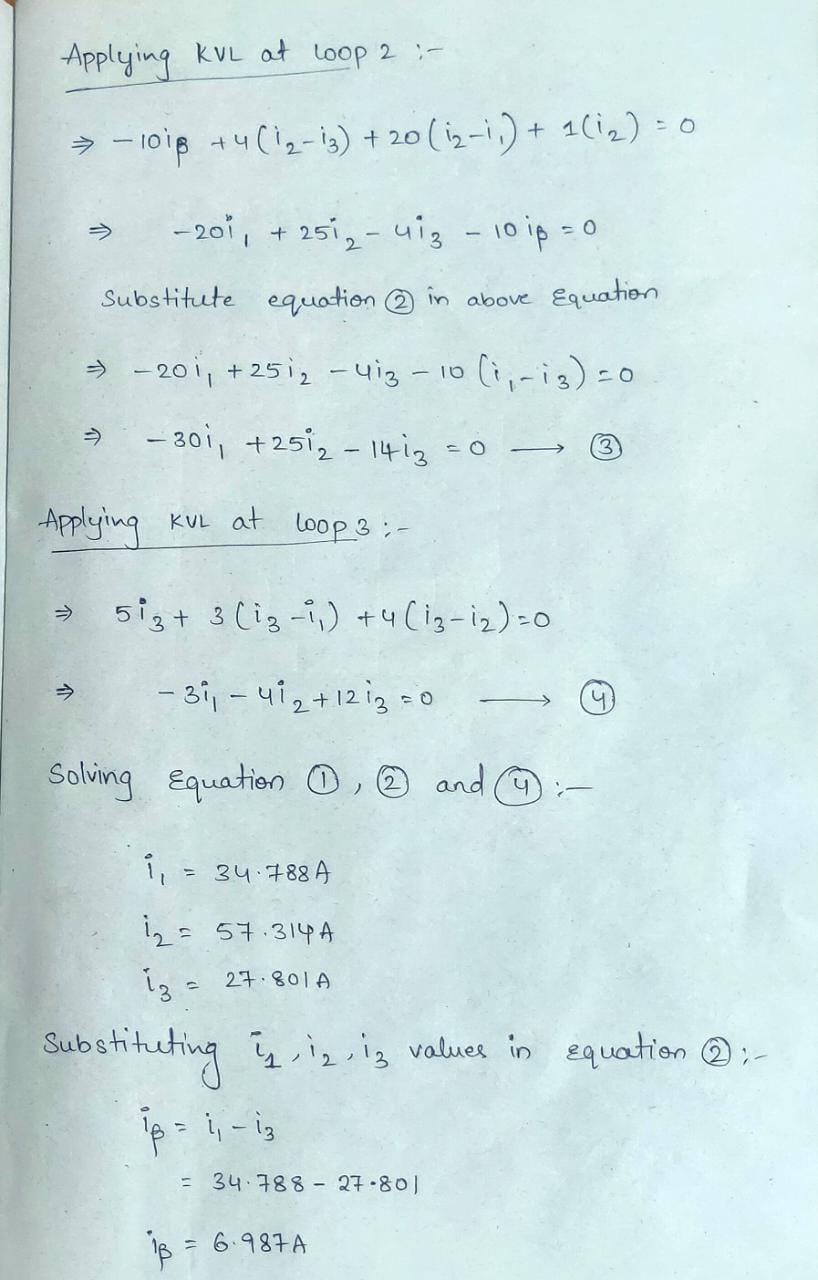 Applying KVL at loop 2 :-
⇒ -10iᵦ + 4(i₂-i₃) + 20(i₂-i₁) + 1(i₂) = 0
⇒ -20i₁ + 25i₂ - 4i₃ - 10iᵦ = 0
Substitute equation ② in above Equation
⇒ -20i₁ + 25i₂ - 4i₃ - 10(i₁-i₃) = 0
⇒ -30i₁ + 25i₂ - 14i₃ = 0 → ③
Applying KVL at loop 3 :-
⇒ 5i₃ + 3(i₃-i₁) + 4(i₃-i₂) = 0
⇒ -3i₁ - 4i₂ + 12i₃ = 0 → ④
Solving Equation ①, ② and ④ :-
i₁ = 34.788A
i₂ = 57.314A
i₃ = 27.801A
Substituting i₁, i₂, i₃ values in equation ② :-
iᵦ = i₁ - i₃
= 34.788 - 27.801
iᵦ = 6.987A